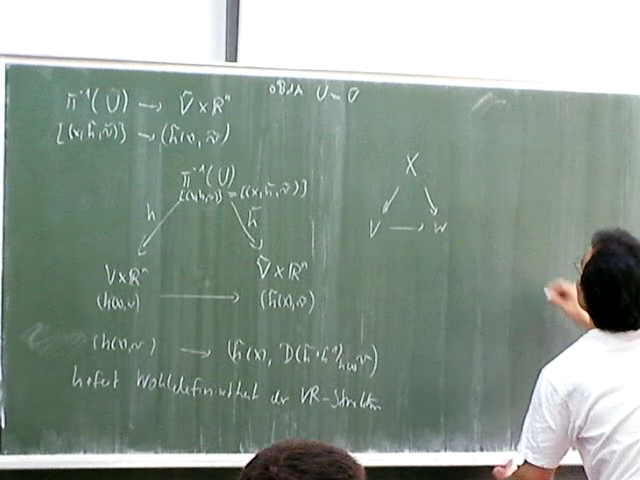 π⁻¹(Ũ) → Ṽ × ℝⁿ
[(x, h̃, ṽ)] → (h̃(x), ṽ)
OBdA U = Ũ
π⁻¹(U)
[(x, h, v)] = [(x, h̃, ṽ)]
h h̃
V × ℝⁿ Ṽ × ℝⁿ
(h(x), v) → (h̃(x), ṽ)
(h(x), v) → (h̃(x), D(h̃∘h⁻¹)|h(x) v)
liefert Wohldefiniertheit der VR-Struktur
X
V → W